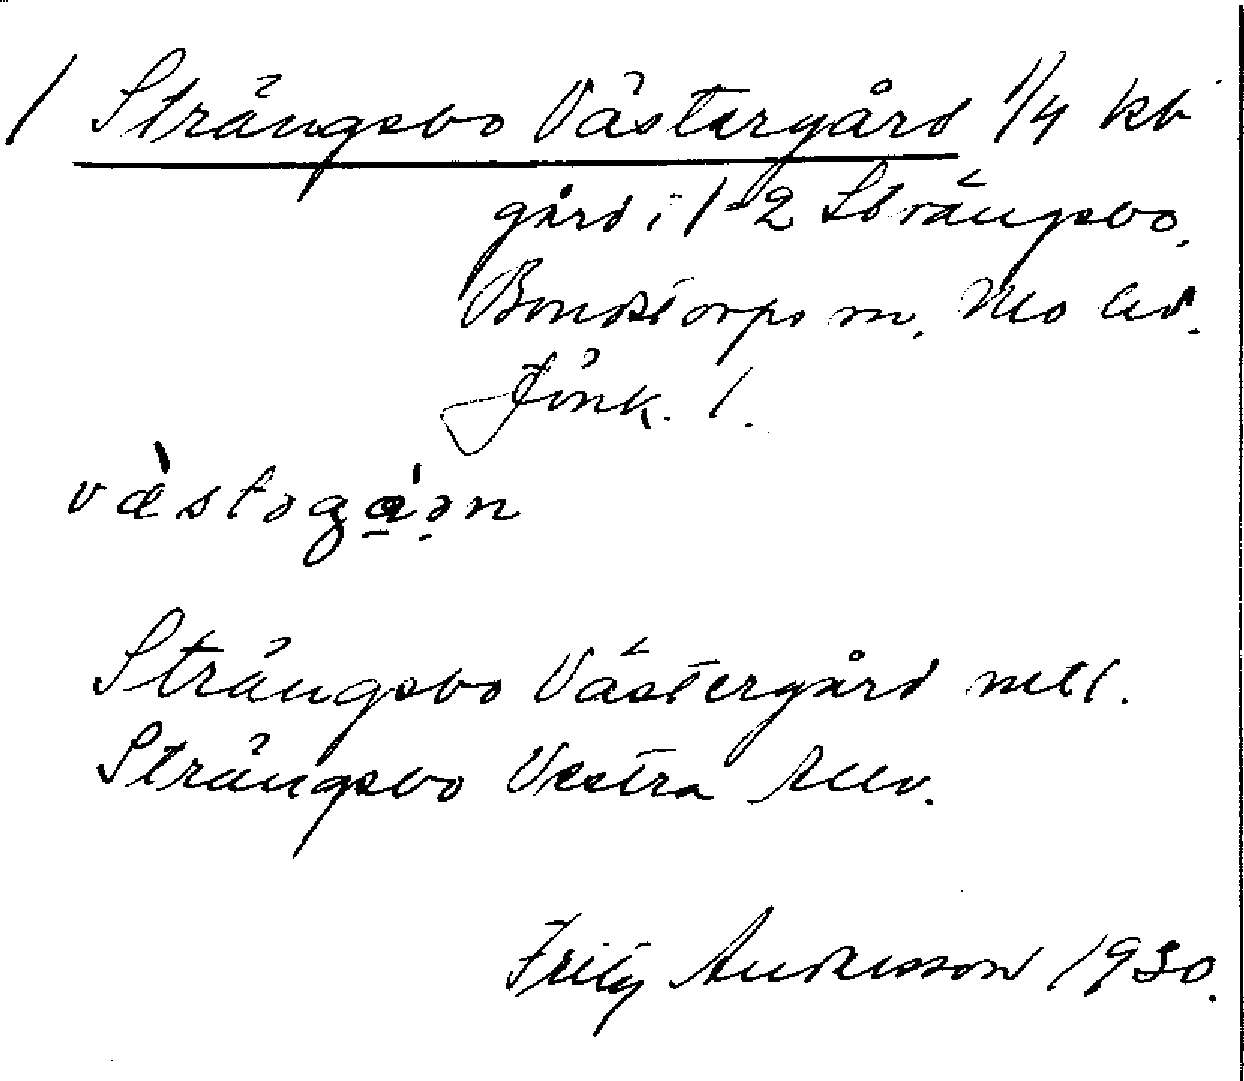 / Strängsbo Västergård 1/4 kb
gård i 1-2 Strängsbo,
Bondstorps sn, Mo hd.
Jönk. l.
væ̀stəga̱'ən
Strängsbo Västergård
Strängsbo Vestra
Fritz Andersson 1930.